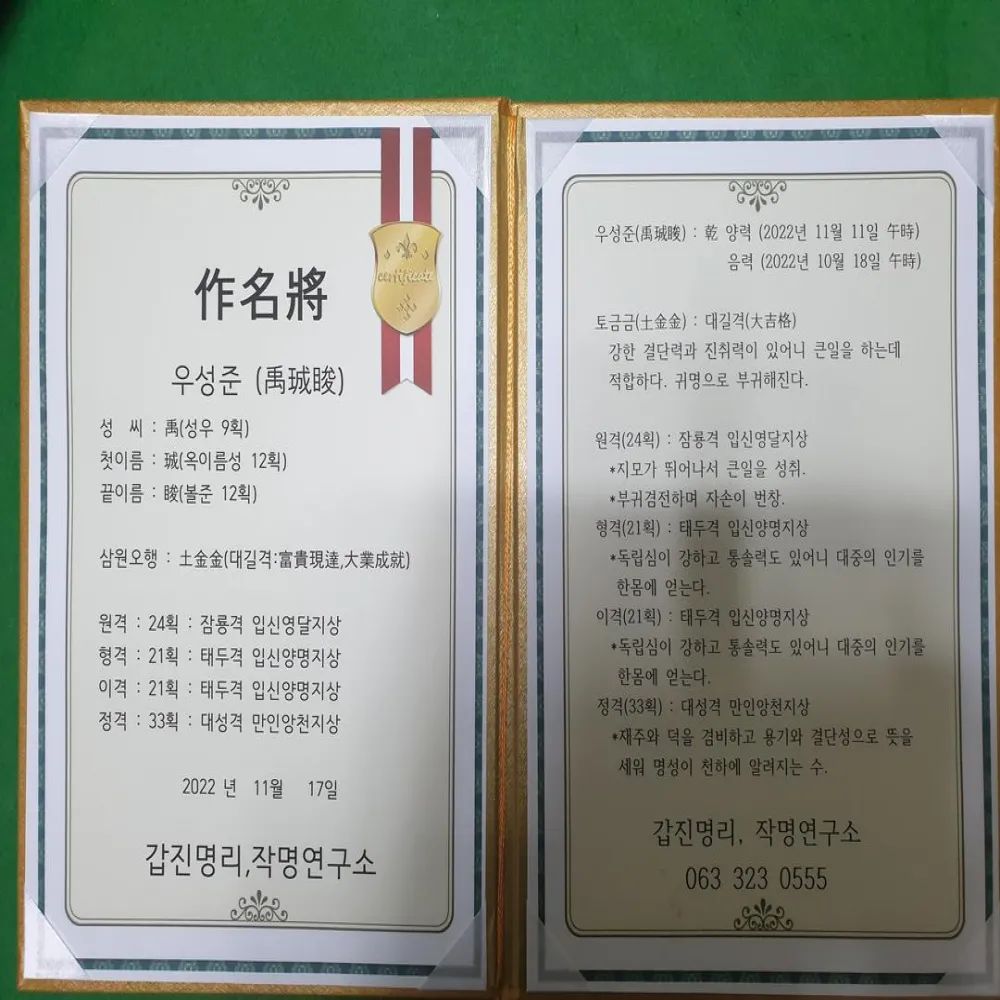 作名將
certificate
우성준 (禹珹晙)
성 씨 : 禹(성우 9획)
첫이름 : 珹(옥이름성 12획)
끝이름 : 睃(볼준 12획)
삼원오행 : 土金金(대길격:富貴現達,大業成就)
원격 : 24획 : 잠룡격 입신영달지상
형격 : 21획 : 태두격 입신양명지상
이격 : 21획 : 태두격 입신양명지상
정격 : 33획 : 대성격 만인앙천지상
2022 년 11월 17일
갑진명리,작명연구소
우성준(禹珹睃) : 乾 양력 (2022년 11월 11일 午時)
음력 (2022년 10월 18일 午時)
토금금(土金金) : 대길격(大吉格)
강한 결단력과 진취력이 있어니 큰일을 하는데
적합하다. 귀명으로 부귀해진다.
원격(24획) : 잠룡격 입신영달지상
*지모가 뛰어나서 큰일을 성취.
*부귀겸전하며 자손이 번창.
형격(21획) : 태두격 입신양명지상
*독립심이 강하고 통솔력도 있어니 대중의 인기를
한몸에 얻는다.
이격(21획) : 태두격 입신양명지상
*독립심이 강하고 통솔력도 있어니 대중의 인기를
한몸에 얻는다.
정격(33획) : 대성격 만인앙천지상
*재주와 덕을 겸비하고 용기와 결단성으로 뜻을
세워 명성이 천하에 알려지는 수.
갑진명리, 작명연구소
063 323 0555